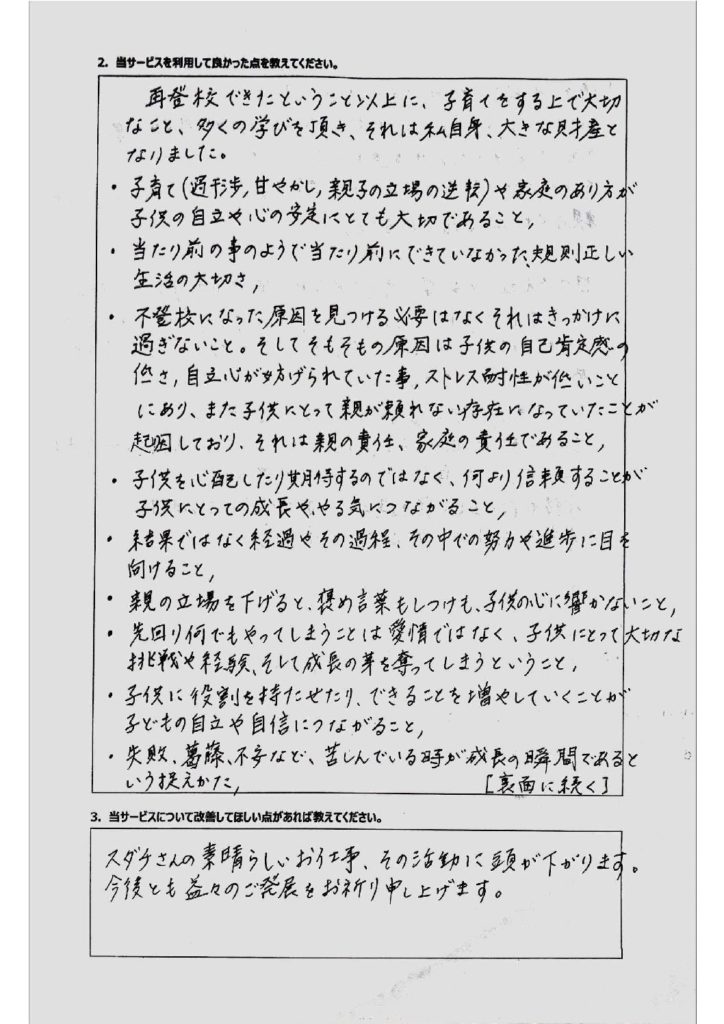 2. 当サービスを利用して良かった点を教えてください。
再登校できたということ以上に、子育てをする上で大切
なこと、多くの学びを頂き、それは私自身、大きな財産と
なりました。
・子育て(過干渉,甘やかし,親子の立場の逆転)や家庭のあり方が
子供の自立や心の安定にとても大切であること,
・当たり前の事のようで当たり前にできていなかった、規則正しい
生活の大切さ,
・不登校になった原因を見つける必要はなくそれはきっかけに
過ぎないこと。そしてそもそもの原因は子供の自己肯定感の
低さ,自立心が妨げられていた事,ストレス耐性が低いこと
にあり、また子供にとって親が頼れない存在になっていたことが
起因しており、それは親の責任、家庭の責任であること,
・子供を心配したり期待するのではなく、何より信頼することが
子供にとっての成長や、やる気につながること,
・結果ではなく経過やその過程、その中での努力や進歩に目を
向けること,
・親の立場を下げると、褒め言葉もしつけも、子供の心に響かないこと,
・先回り何でもやってしまうことは愛情ではなく、子供にとって大切な
挑戦や経験、そして成長の芽を奪ってしまうということ,
・子供に役割を持たせたり、できることを増やしていくことが
子どもの自立や自信につながること,
・失敗、葛藤、不安など、苦しんでいる時が成長の瞬間であると
いう捉えかた,
[裏面に続く]
3. 当サービスについて改善してほしい点があれば教えてください。
スダチさんの素晴らしいお仕事、その活動に頭が下がります。
今後とも益々のご発展をお祈り申し上げます。